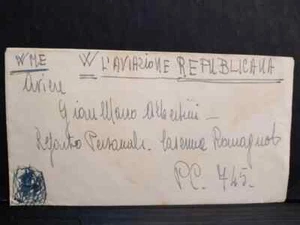 W ME W L'AVIAZIONE REPUBLICANA
Aviere
Gian Mario Albertini -
Reparto Personale. Caserma Romagnoli
P.C. 745.